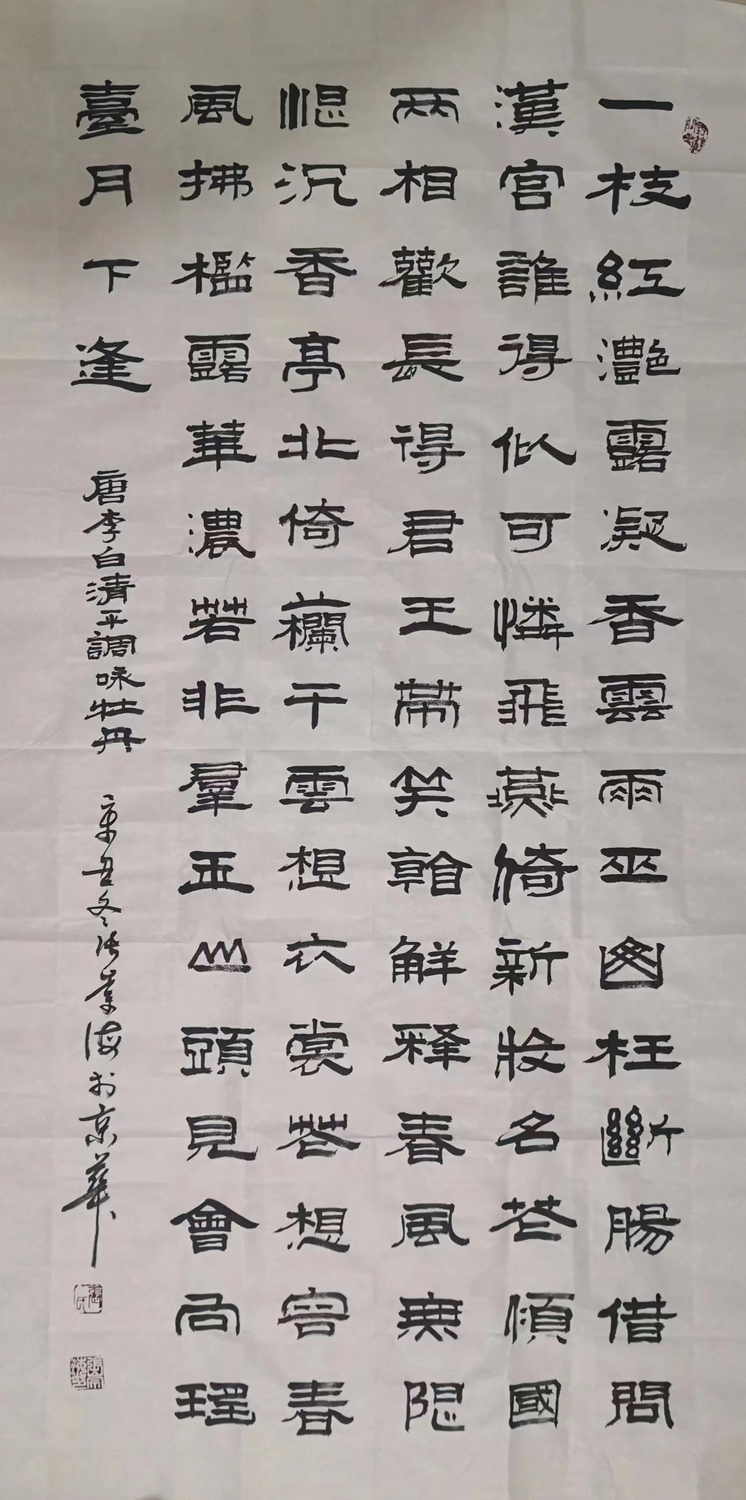 一枝紅灔露凝香雲雨巫山枉斷腸借問
漢宮誰得似可憐飛燕倚新妝名花傾國
兩相歡長得君王帶笑翰解釋春風無限
恨沉香亭北倚欄干雲想衣裳花想容春
風拂檻露華濃若非羣玉山頭見會向瑤
臺月下逢
唐李白清平調咏牡丹
辛丑冬張崇海於京華